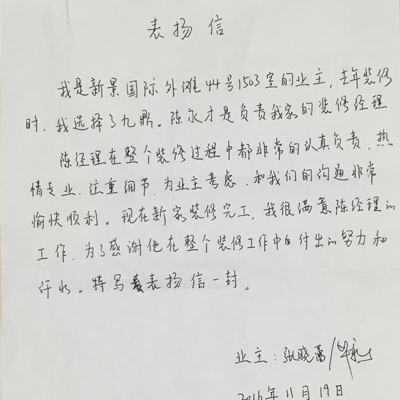 表扬信
我是新景国际外滩44号1503室的业主,去年装修
时,我选择了九鼎。陈永才是负责我家的装修经理
陈经理在整个装修过程中都非常的认真负责,热
情专业,注重细节,为业主考虑,和我们的沟通非常
愉快顺利。现在新家装修完工,我很满意陈经理的
工作,为了感谢他在整个装修工作中付出的努力和
汗水。特写表扬信一封。
业主:张晓蕾/
2016年11月19日